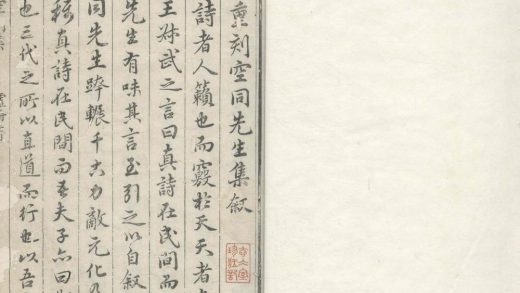 重刻空同先生集叙
詩者人籟也而竅於天天者
王叔武之言曰真詩在民間而
先生有味其言至引之以自叙
同先生蹂輾千古力敵元化乃
稱真詩在民間而吾夫子亦曰
也三代之所以直道而行也以吾